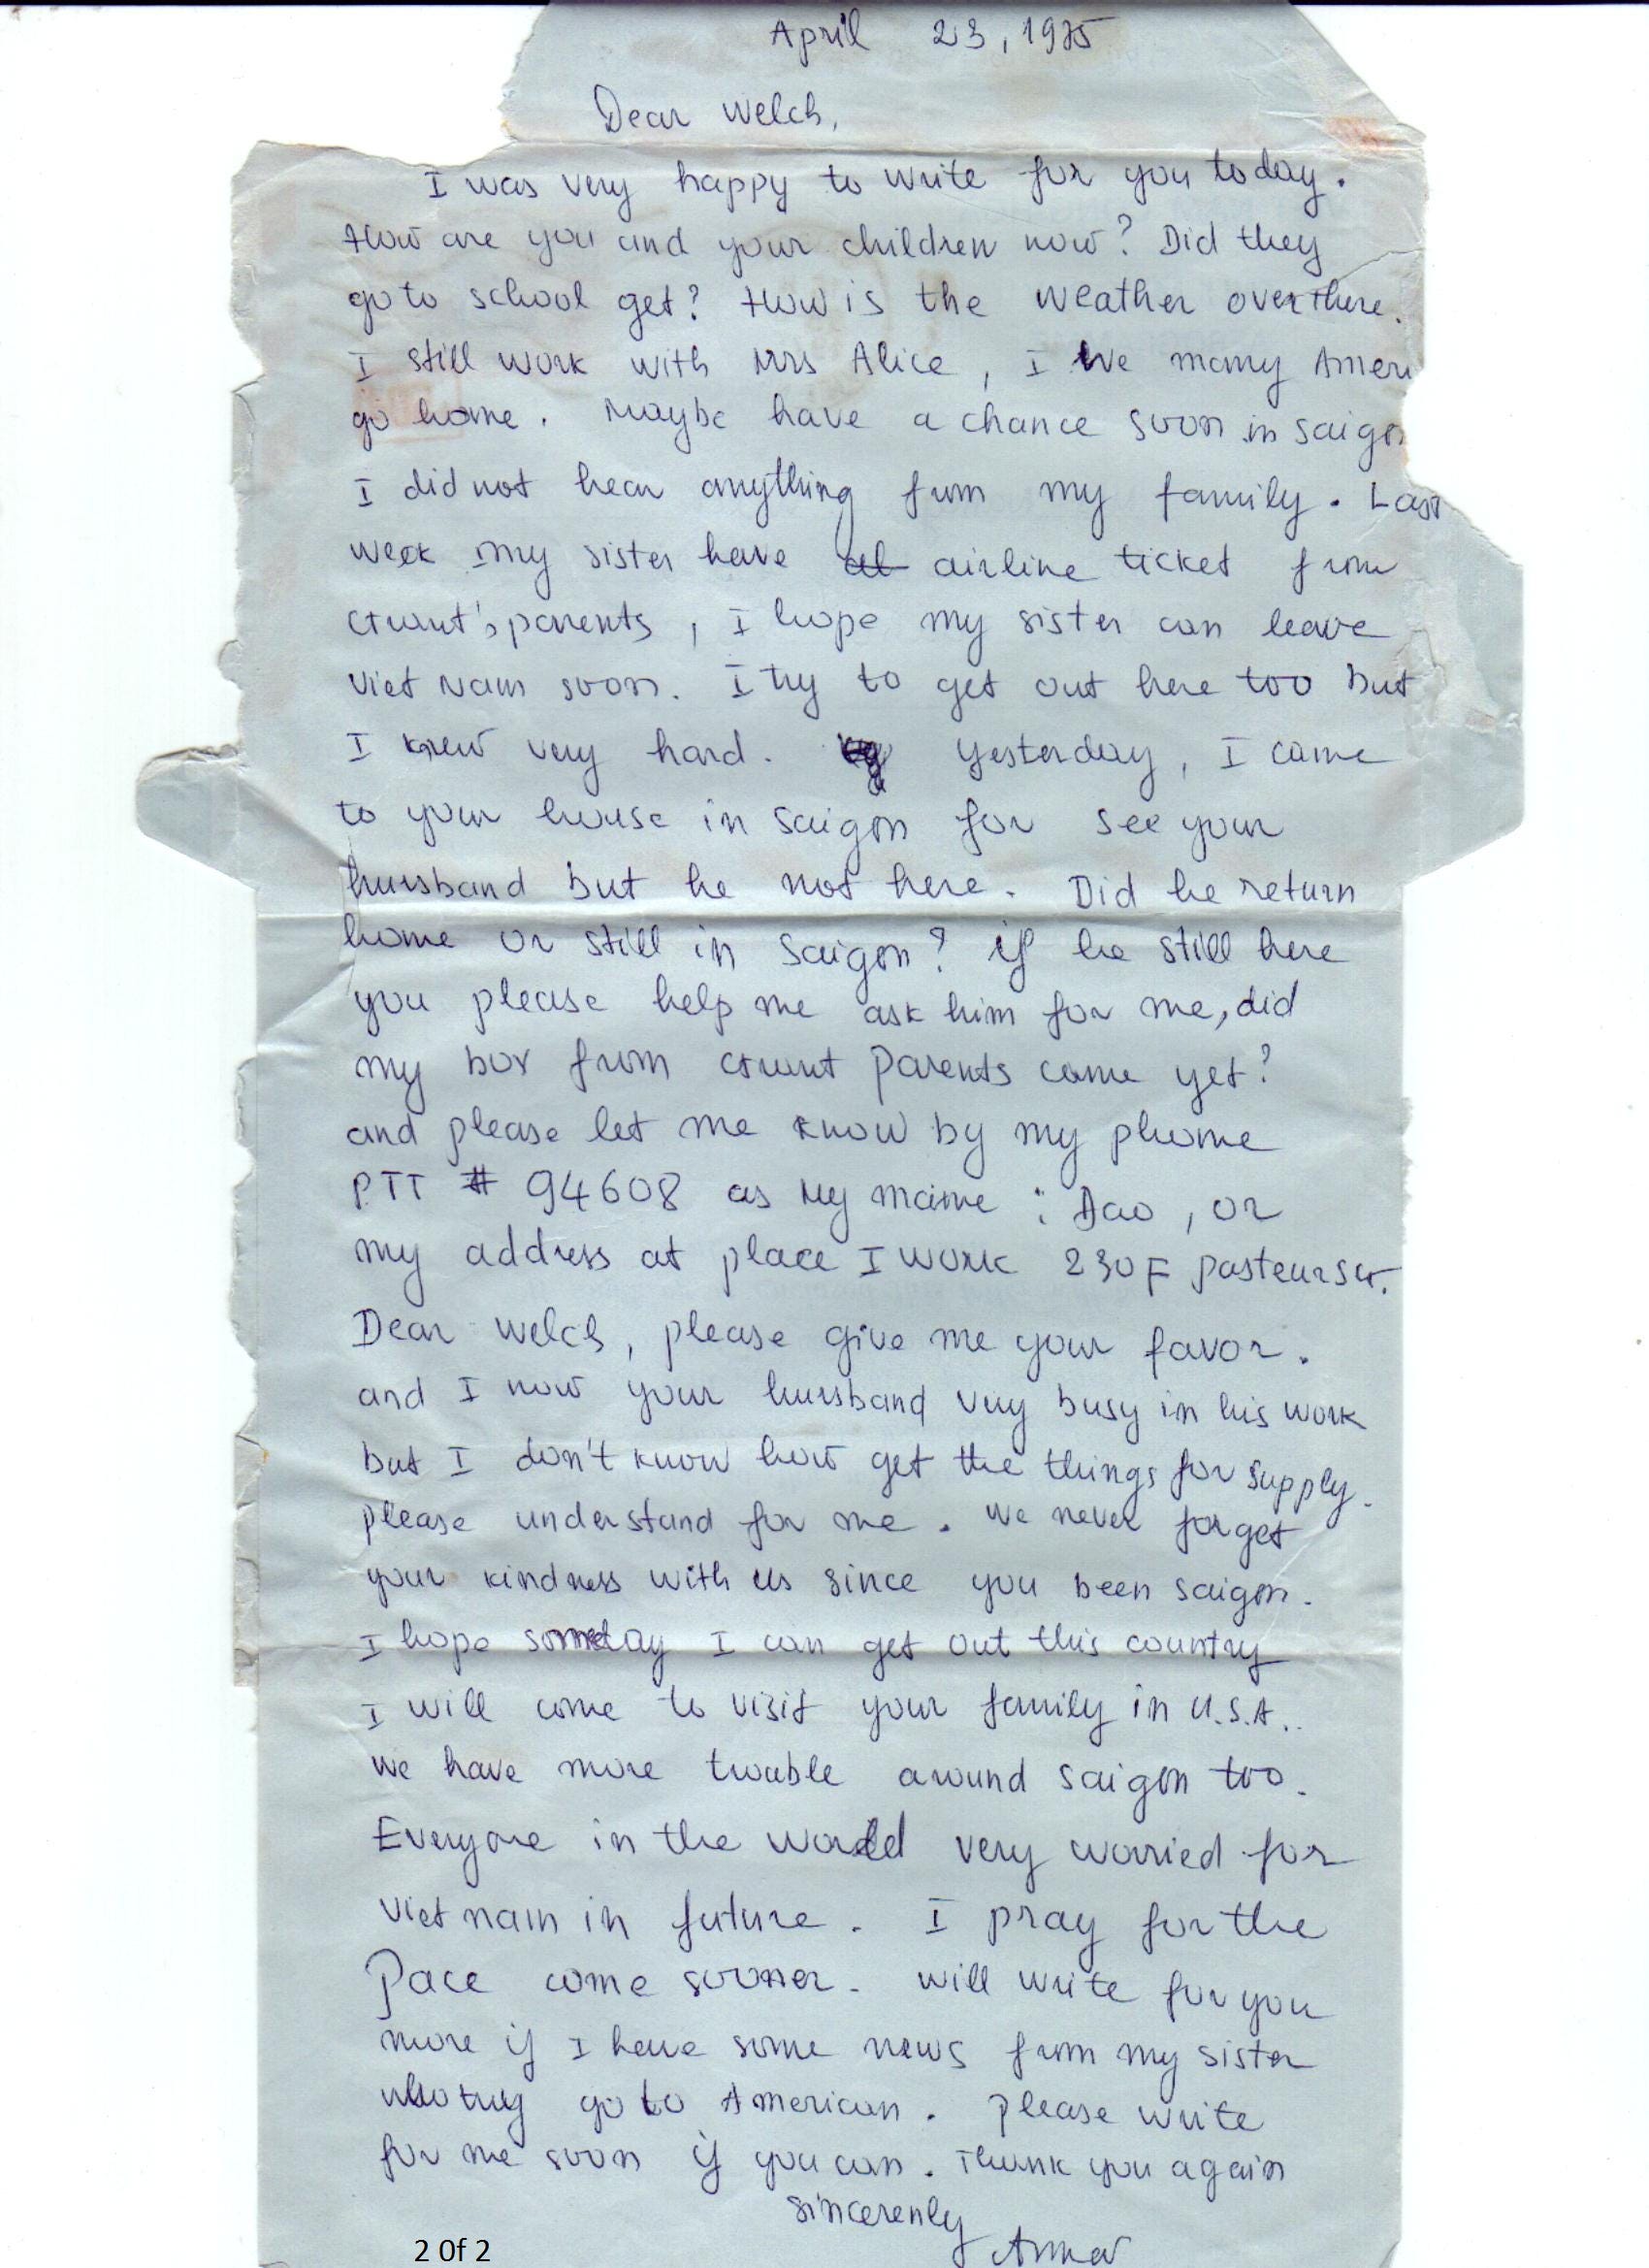 April 23, 1975
Dear Welch,
I was very happy to write for you today.
How are you and your children now? Did they
go to school get? How is the weather over there.
I still work with Mrs Alice, I many Ameri
go home. Maybe have a chance soon in saigon
I did not hear anything from my family. Last
week my sister have airline ticket from
Grant's parents, I hope my sister can leave
Viet Nam soon. I try to get out here too but
I knew very hard. yesterday, I came
to your house in saigon for see your
hursband but he not here. Did he return
home or still in saigon? if he still here
you please help me ask him for me, did
my box from Grant parents come yet?
and please let me know by my phome
PTT # 94608 as My name : Dao, or
my address at place I work 230F pasteur str.
Dear Welch, please give me your favor.
and I now your hursband very busy in his work
but I don't know how get the things for supply.
please understand for me. We never forget
your kindness with us since you been saigon.
I hope someday I can get out this country
I will come to visit your family in U.S.A..
We have more trouble around saigon too.
Everyone in the world very worried for
Viet nam in future. I pray for the
Pace come sooner. will write for you
more if I have some news from my sister
who try go to American. please write
for me soon if you can. Thank you again
sincerenly
2 0f 2